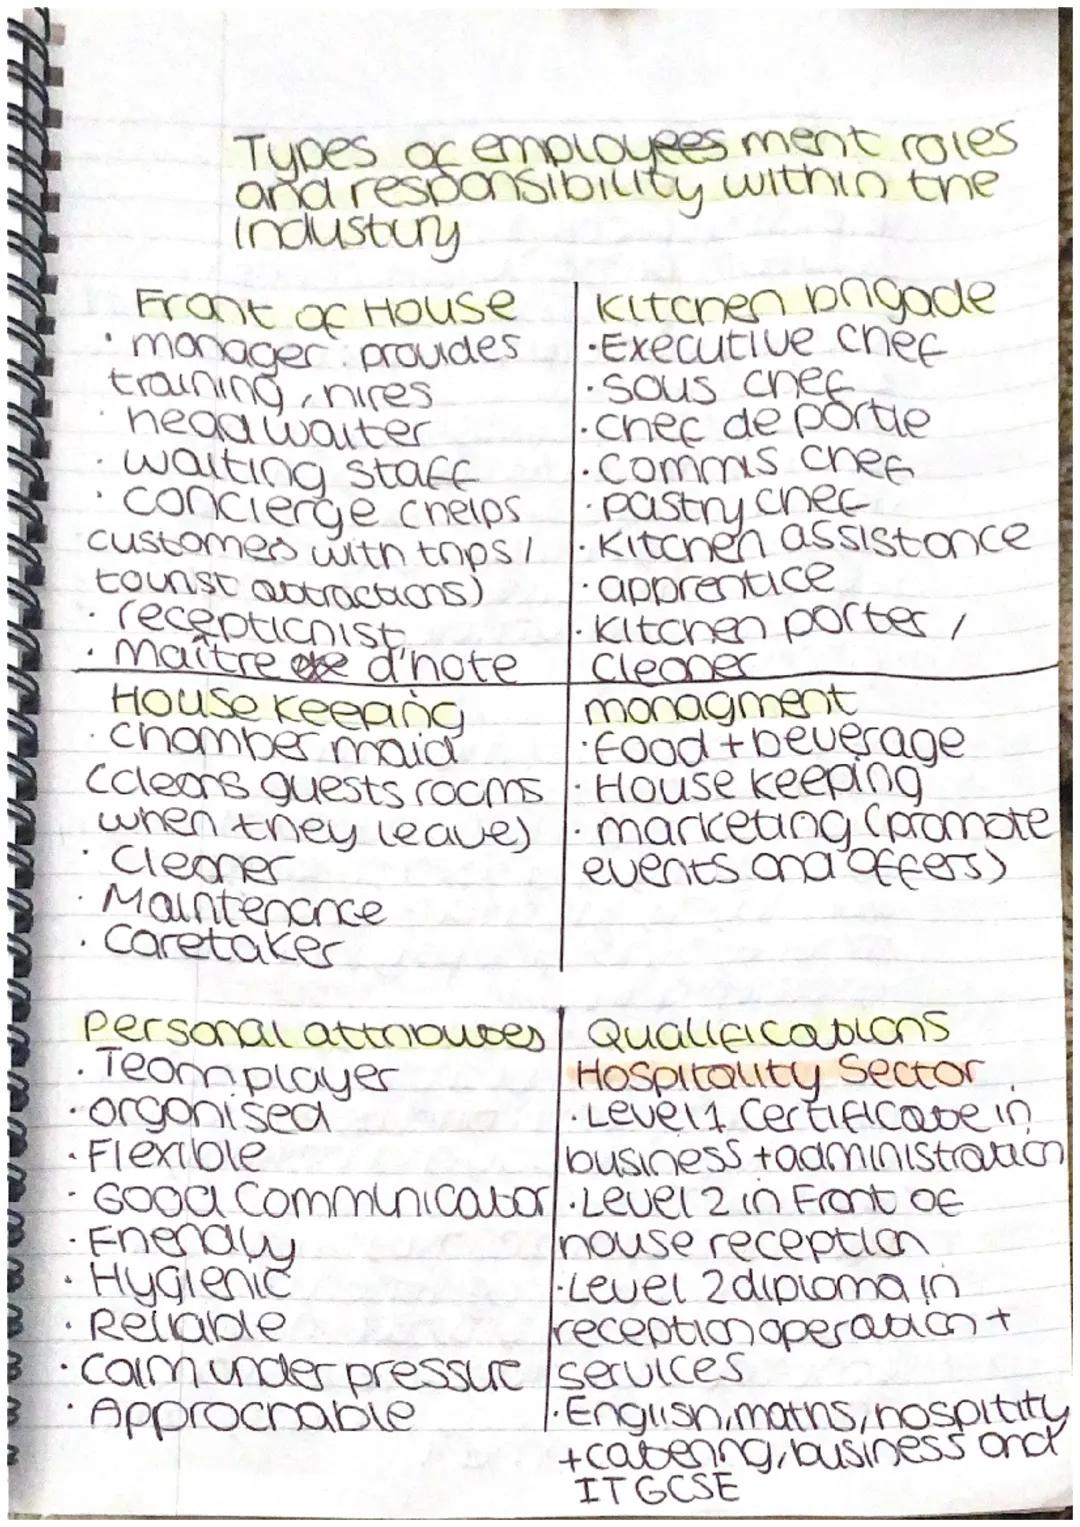 Types of employees ment roles
and responsibility within the
industury
Front of House
· manager: provides
training, hires
· head waiter
· waiting staff
· concierge (helps
customers with trips /
tourist attractions)
· receptionist
· Maître de d'hote
Kitchen brigade
· Executive chef
· Sous chef
· chef de partie
· Commis chef
· pastry chef
· Kitchen assistance
· apprentice
· Kitchen porter /
cleaner
House keeping
· Chamber maid
(cleans guests rooms
when they leave)
· Cleaner
· Maintenance
· Caretaker
managment
· food + beverage
· House keeping
· marketing (promote
events and offers)
Personal attributes
· Team player
· organised
· Flexible
· Good Comminicator
· Friendly
· Hygienic
· Reliable
· Calm under pressure
· Approchable
Qualifications
Hospitality Sector
· Level 1 Certificate in
business + administration
· Level 2 in Front of
house reception
· Level 2 diploma in
reception operation +
services
· English, maths, hospitity
+ catering, business and
IT GCSE